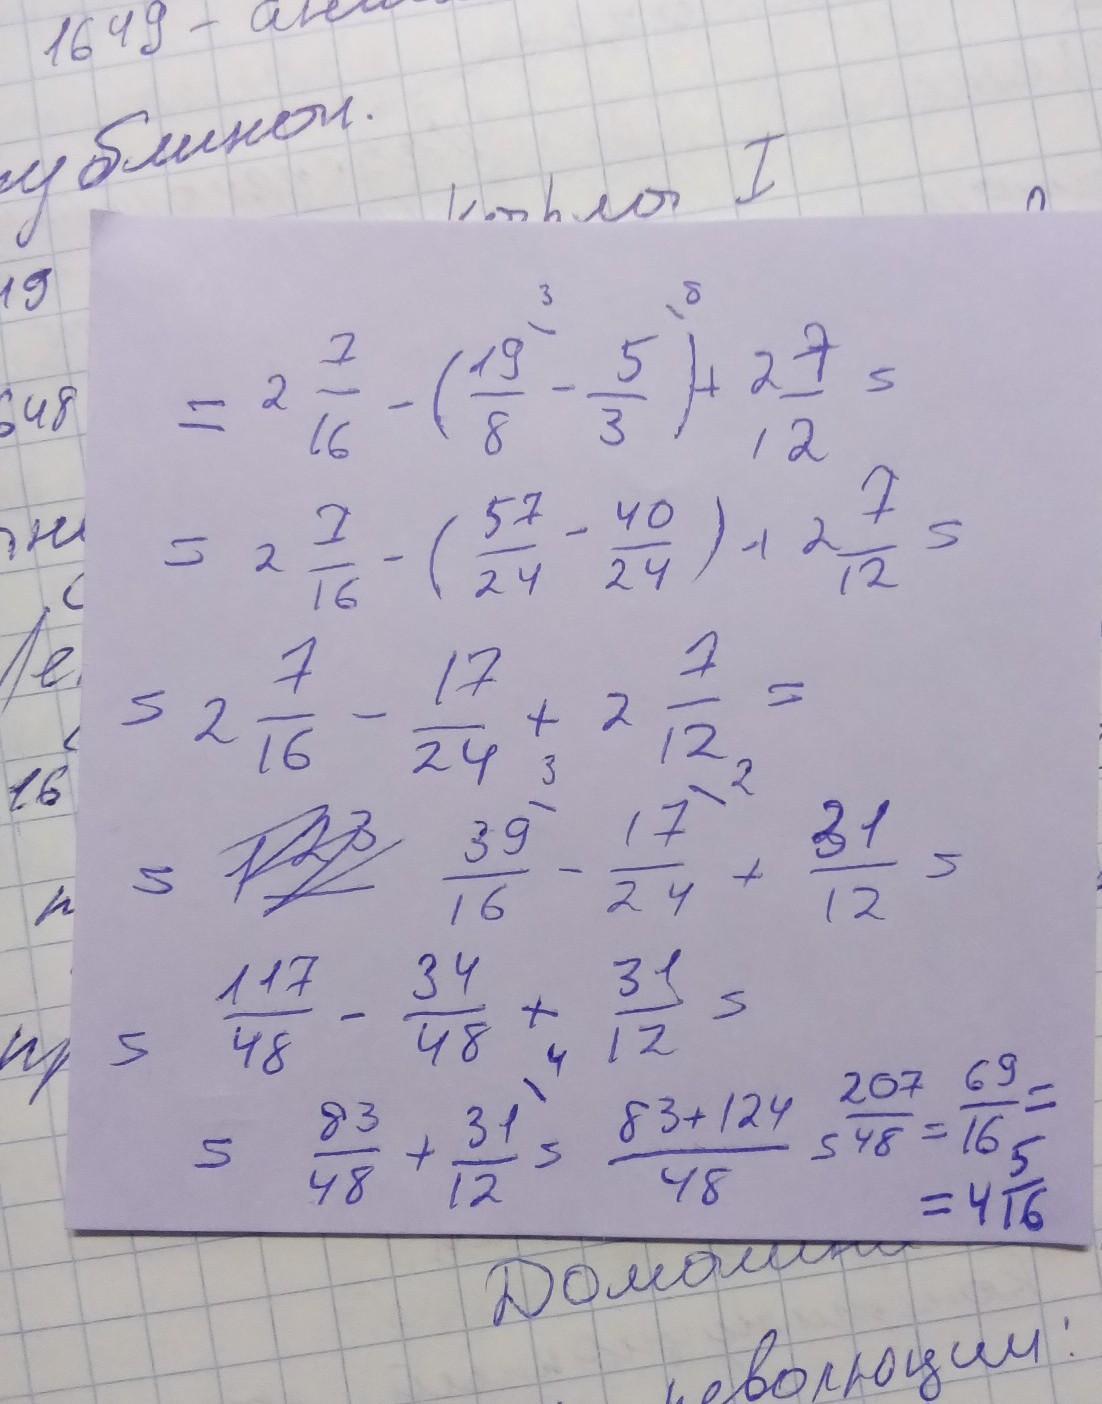 1649 -
публикой.
I
19
648
= 2 7/16 - (19/8 \3 - 5/3 \8) + 2 7/12 =
= 2 7/16 - (57/24 - 40/24) + 2 7/12 =
= 2 7/16 - 17/24 + 2 7/12 =
16
= 39/16 \3 - 17/24 \2 + 31/12 =
= 117/48 - 34/48 + 31/12 =
= 83/48 + 31/12 \4 = 83+124/48 = 207/48 = 69/16 =
= 4 5/16
революции: